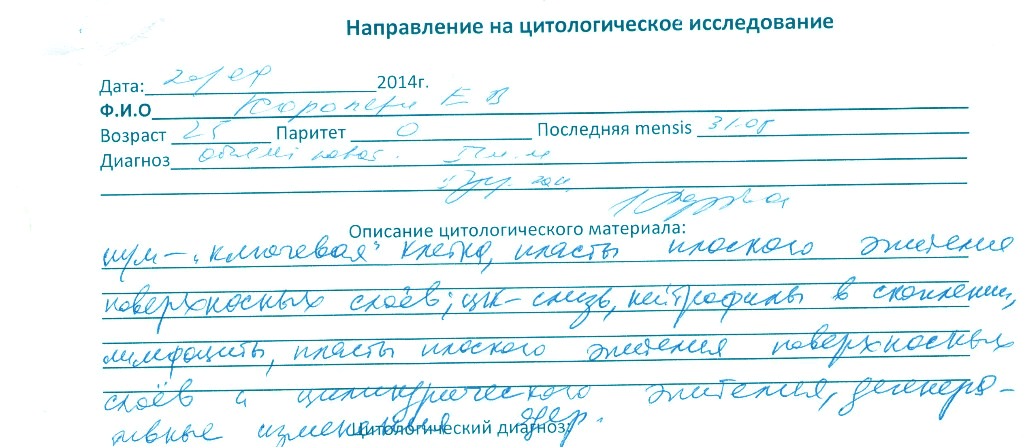 Направление на цитологическое исследование
Дата: 2014г.
Ф.И.О Е В
Возраст 25 Паритет 0 Последняя mensis 31.08
Диагноз
Описание цитологического материала:
ш/м – "ключевая" клетка, пласты плоского эпителия
поверхносных слоёв; цк – слизь, нейтрофилы в скоплении,
лимфоциты, пласты плоского эпителия поверхносных
слоёв и цилиндрического эпителия, дегенера-
тивные изменения
Цитологический диагноз: